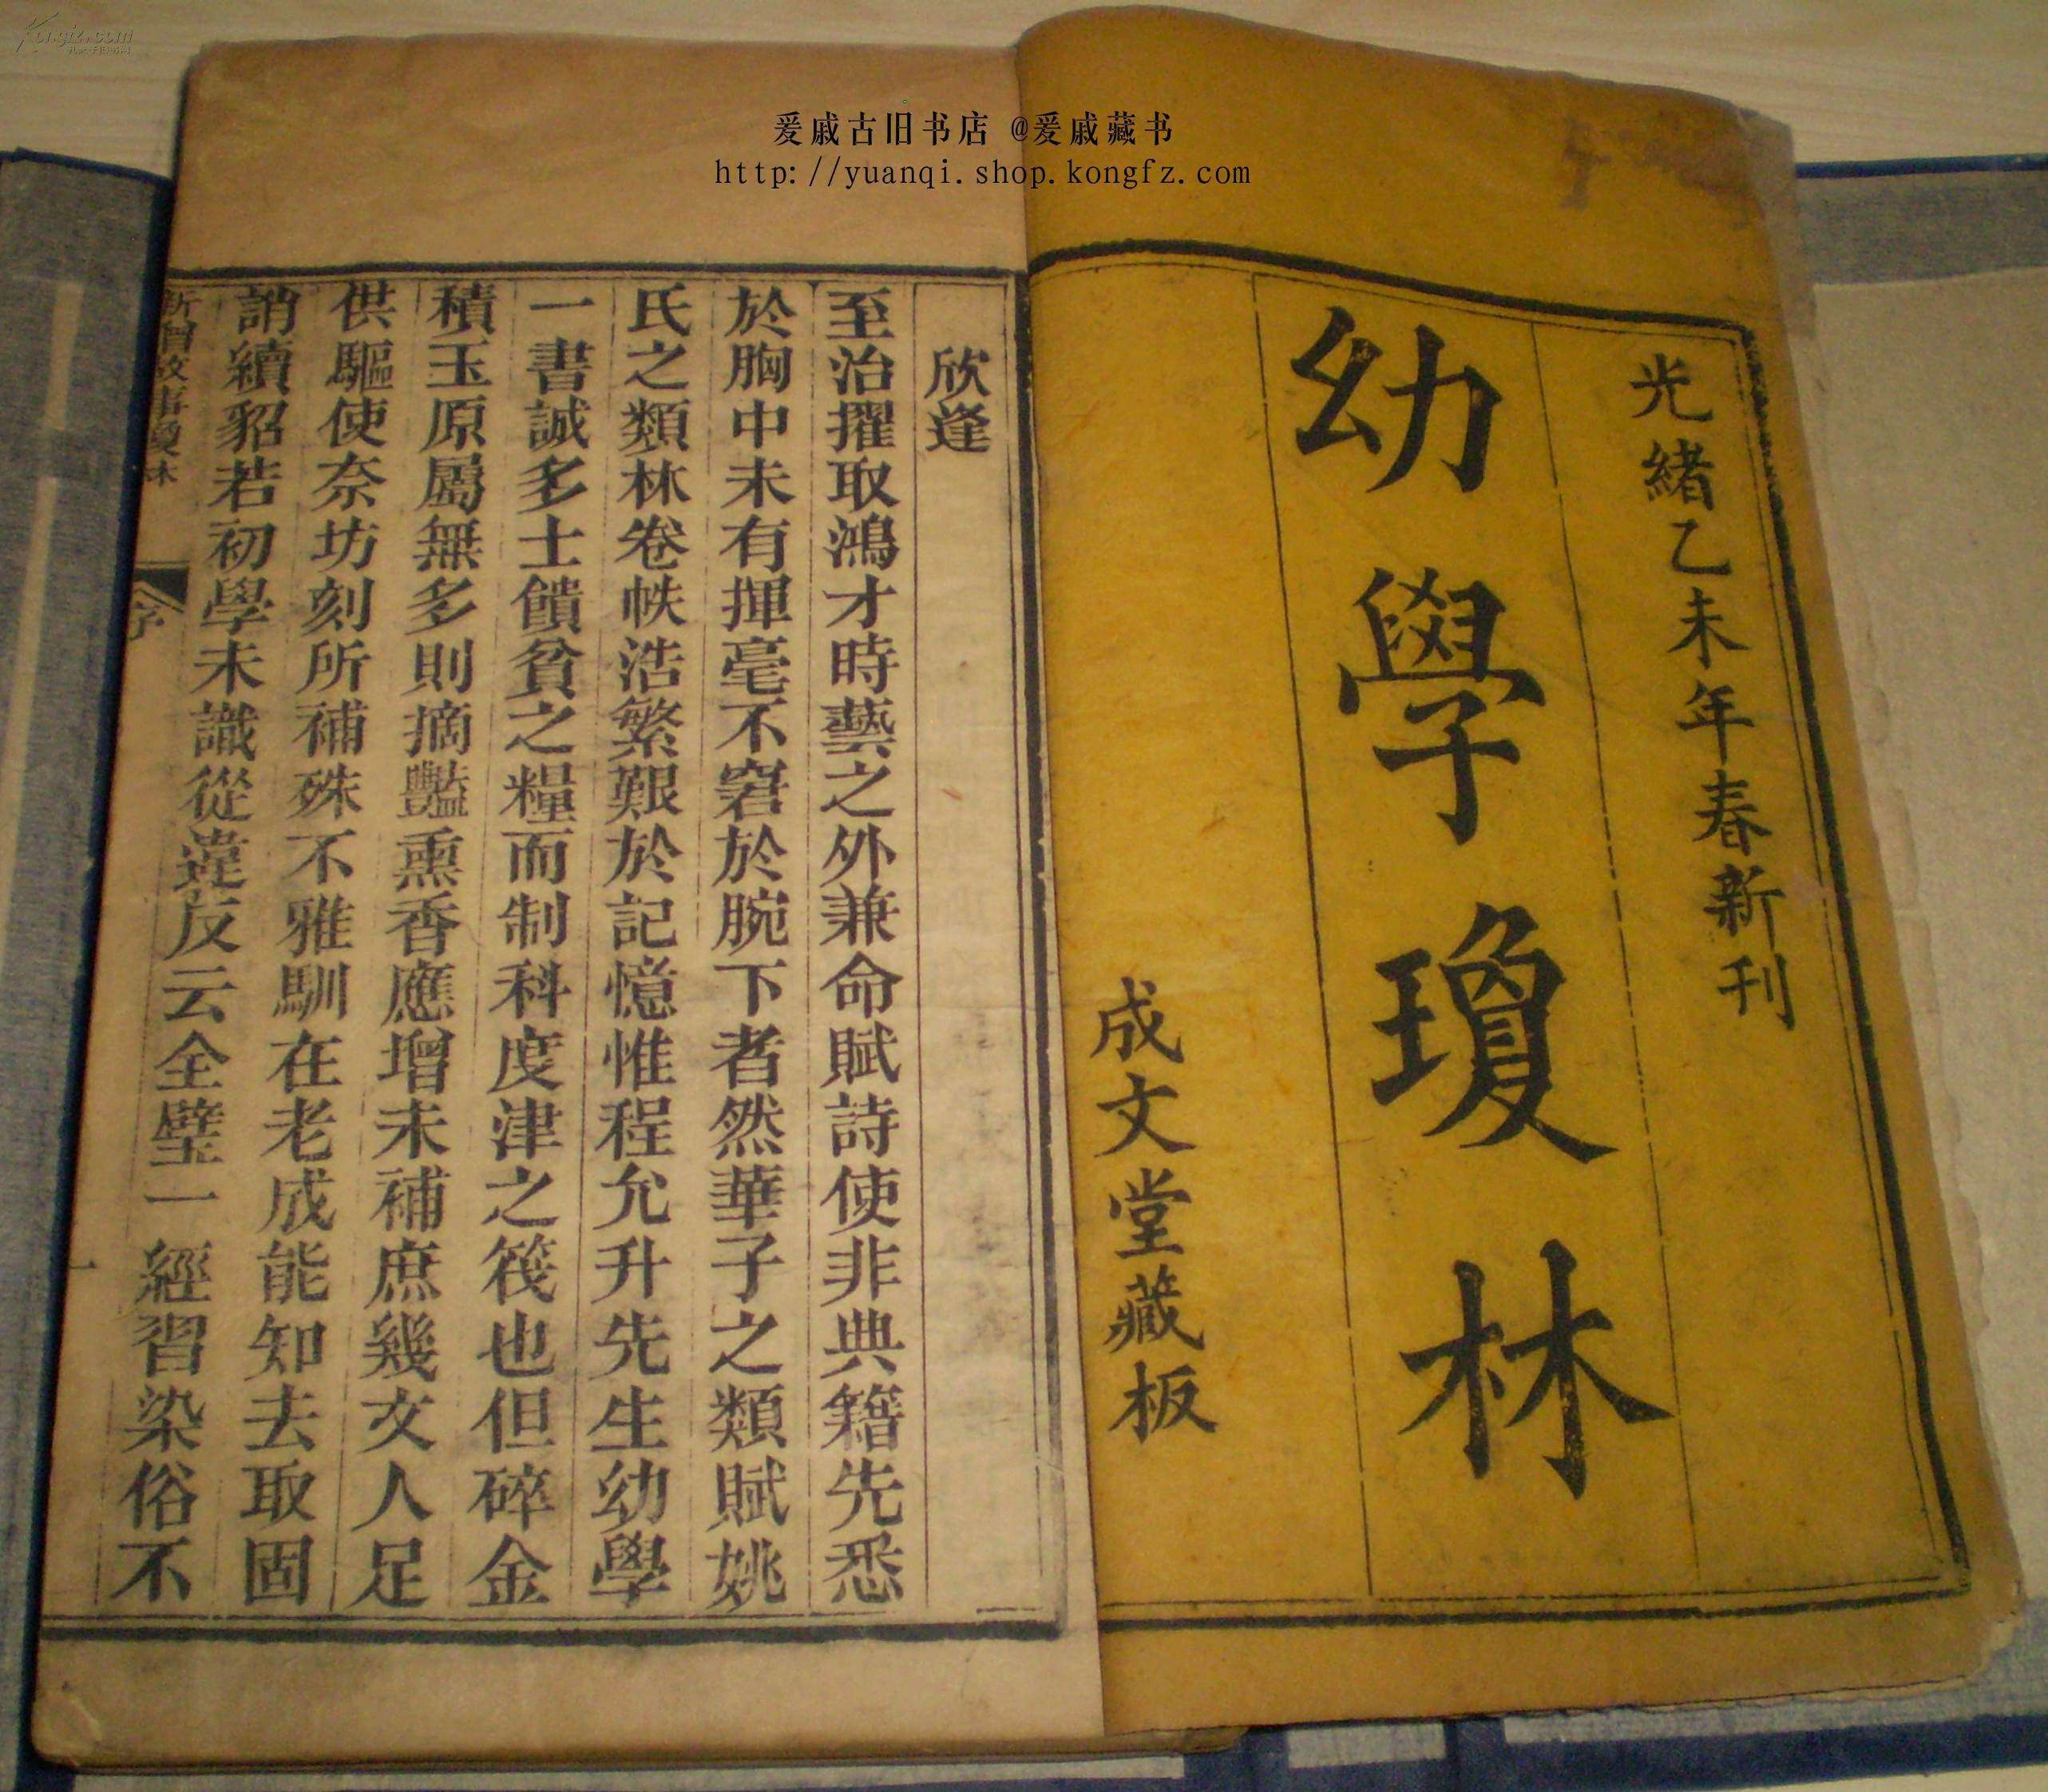 Kongfz.com
孔夫子旧书网
爰戚古旧书店 @爰戚藏书
http://yuanqi.shop.kongfz.com
光緒乙未年春新刊
幼學瓊林
成文堂藏板
欣逢
至治擢取鴻才時藝之外兼命賦詩使非典籍先悉
於胸中未有揮毫不窘於腕下者然華子之類賦姚
氏之類林卷帙浩繁艱於記憶惟程允升先生幼學
一書誠多士饋貧之糧而制科度津之筏也但碎金
積玉原屬無多則摘豔熏香應增未補庶幾文人足
供驅使奈坊刻所補殊不雅馴在老成能知去取固
誚續貂若初學未識從違反云全璧一經習染俗不
新增故事瓊林
序
一